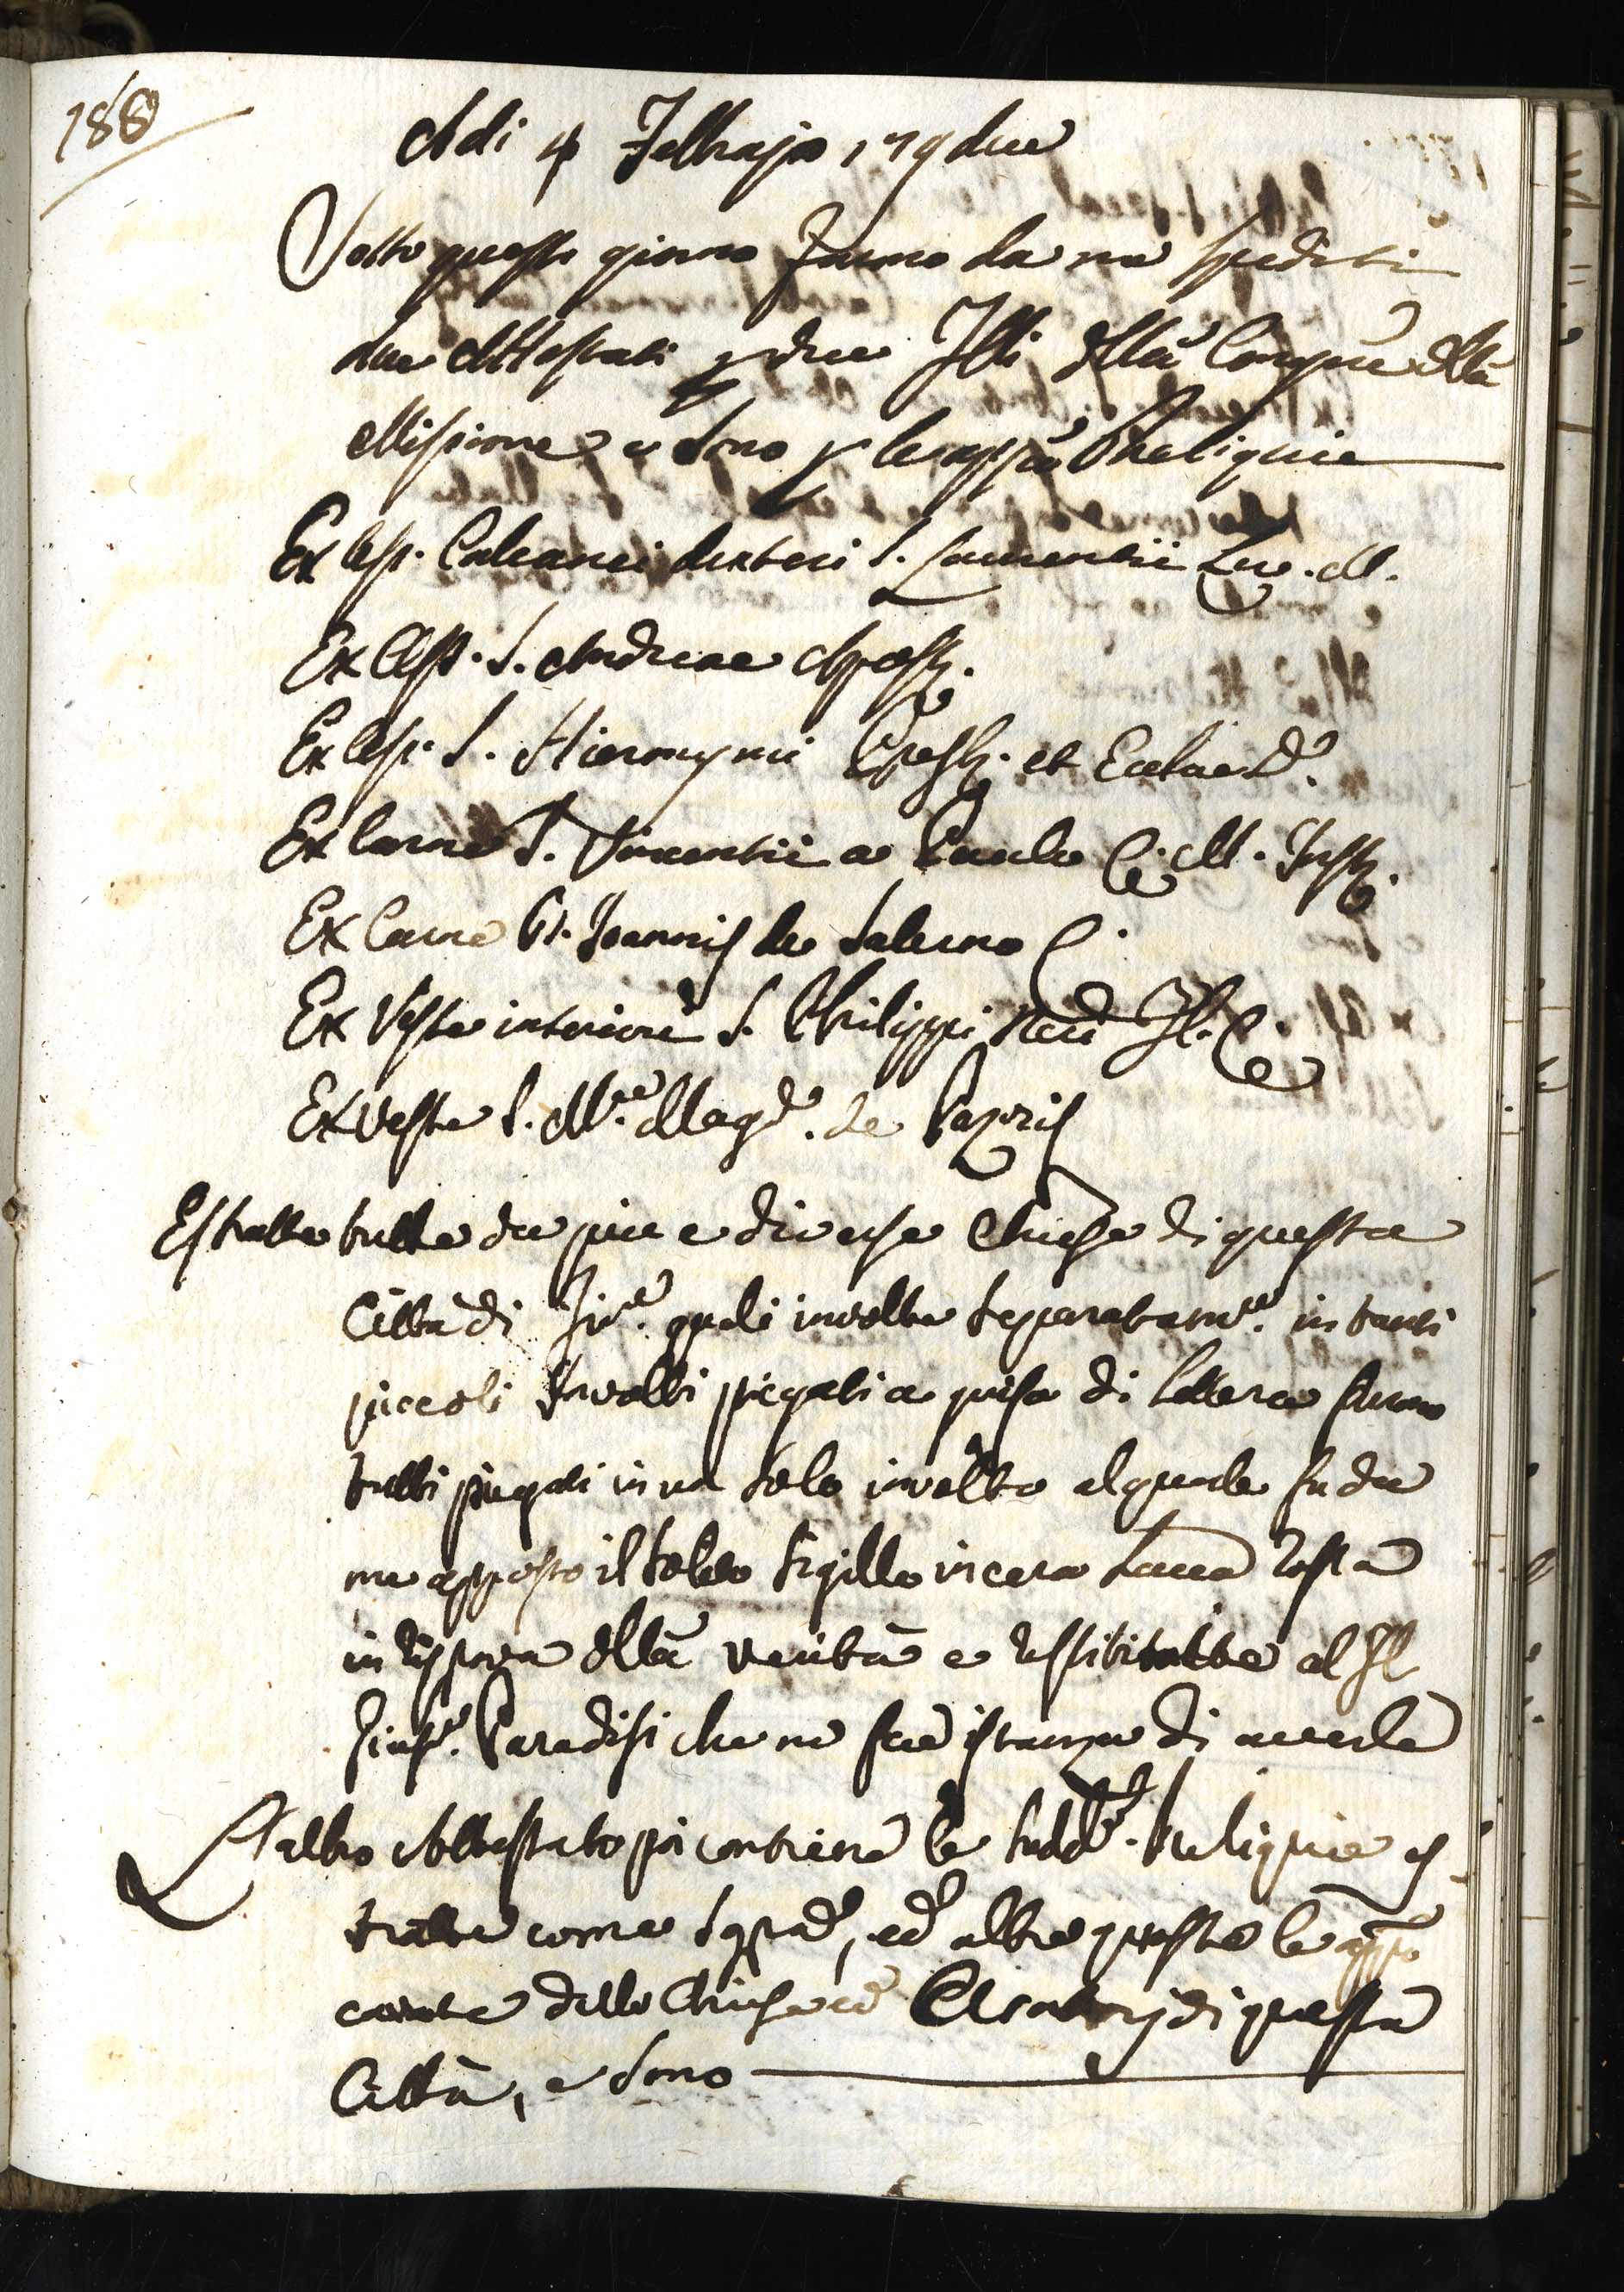 188
Adi 4 Febbrajo 179due
Sotto questo giorno furno da me spediti
due Attestati p due Flli dlla Congne dlla
Missione e sono p le appiè Reliquie
Ex Oss. Calcanei dexteri S. Laurentii Lev. M.
Ex Oss. S. Andreae Apost.
Ex Oss. S. Hieronymi Presb. et Eccl͞ae D.
Ex Carne S. Vincentii a Paulo C. M. Inst.
Ex Carne B. Joannis de Salerno C.
Ex Veste interiore S. Philippi Neri Fl. C.
Ex Veste S. M.e Magd. de Pazzis
Estratte tutte da piu e diverse Chiese di questa
Città di Fir.e quali involte separatam.e in tanti
piccoli Involti piegati a guisa di Lettera furno
tutti piegati in un solo involto al quale fu da
me apposto il solito Sigillo in cera Lacca Rossa
in riprova dlla verità e restituitte al Fl
Gius.e Paradisi che ne fece istanza di averle
L'altro Attestato poi contiene le sudd.e Reliquie es-
tratte come sopra, ed altre queste le app.o
cavate dalle Chiese ed Oratorj di questa
Città, e sono